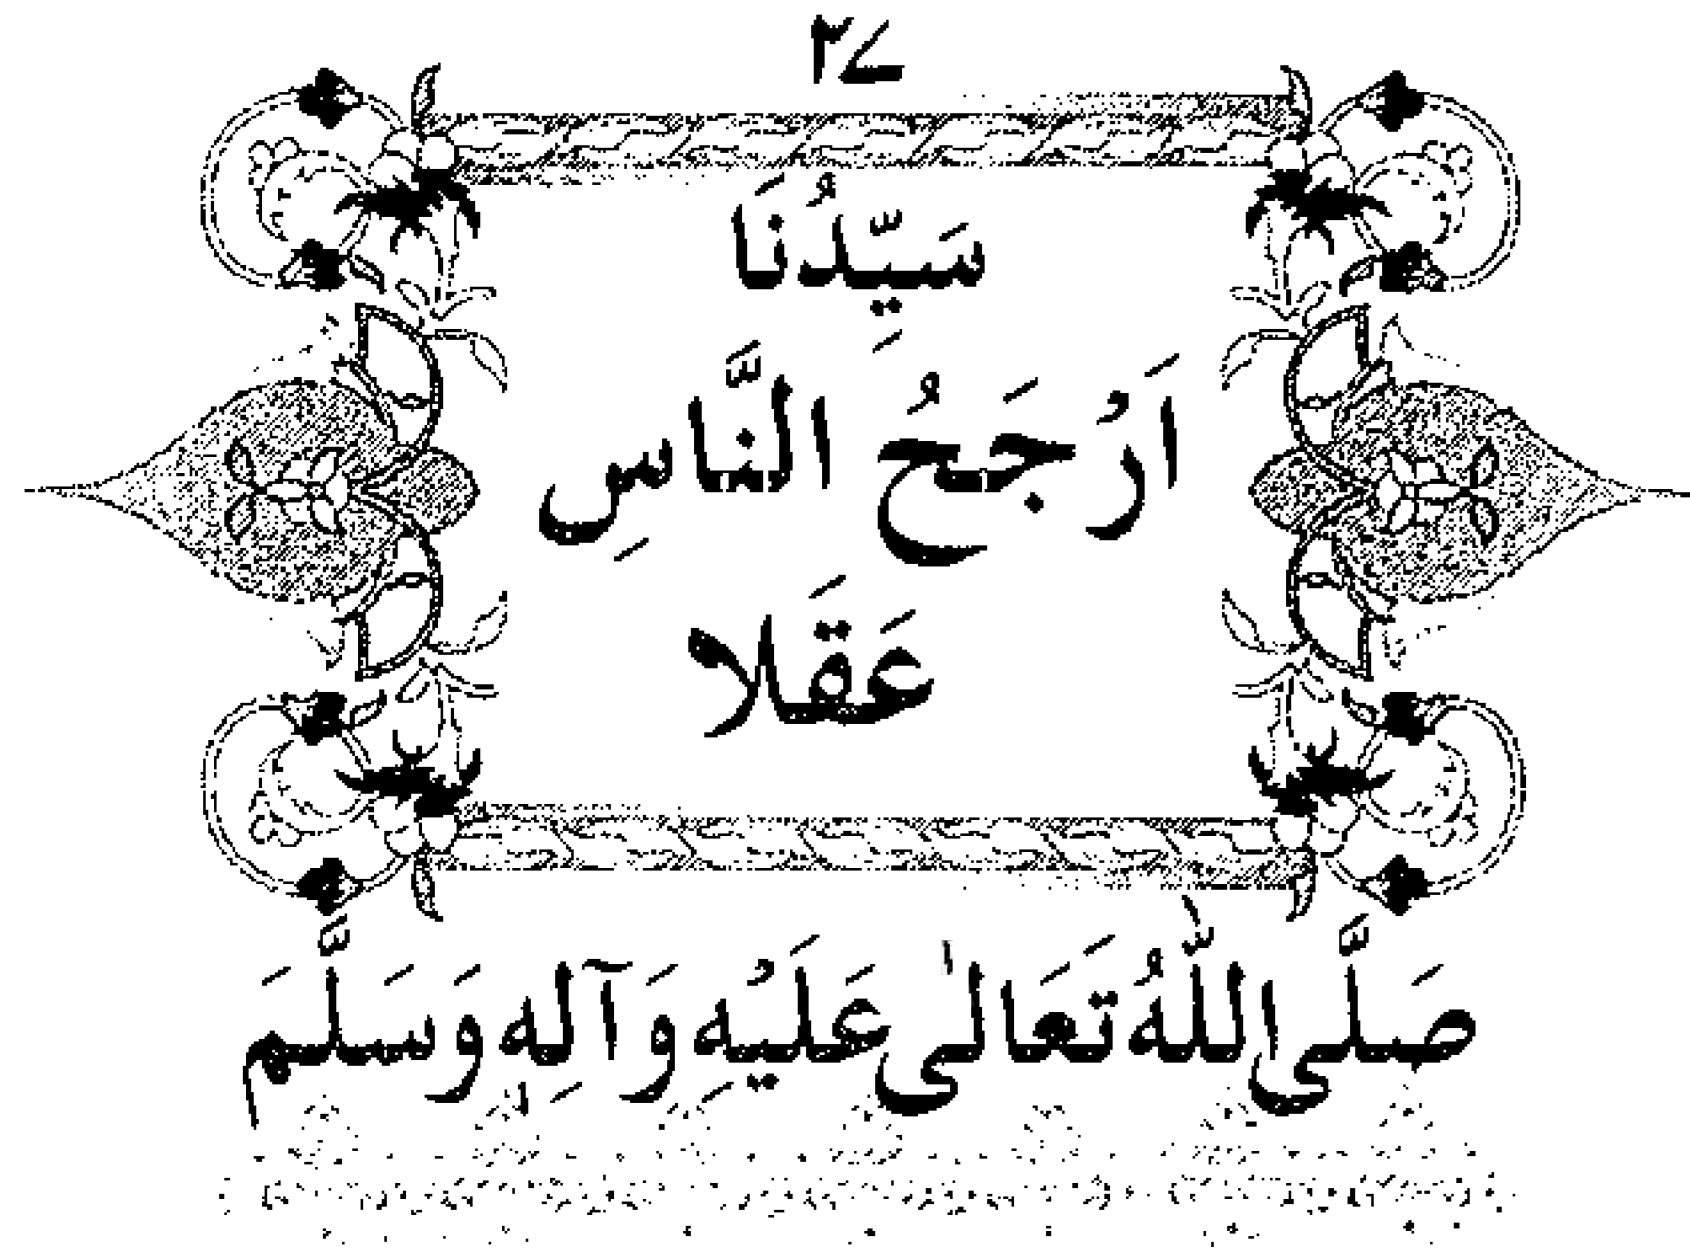 ۲۷
سَيِّدُنَا
اَرْجَحُ النَّاسِ
عَقَلا
صَلَّی اللّٰهُ تَعَالٰی عَلَيْهِ وَآلِهٖ وَسَلَّمَ